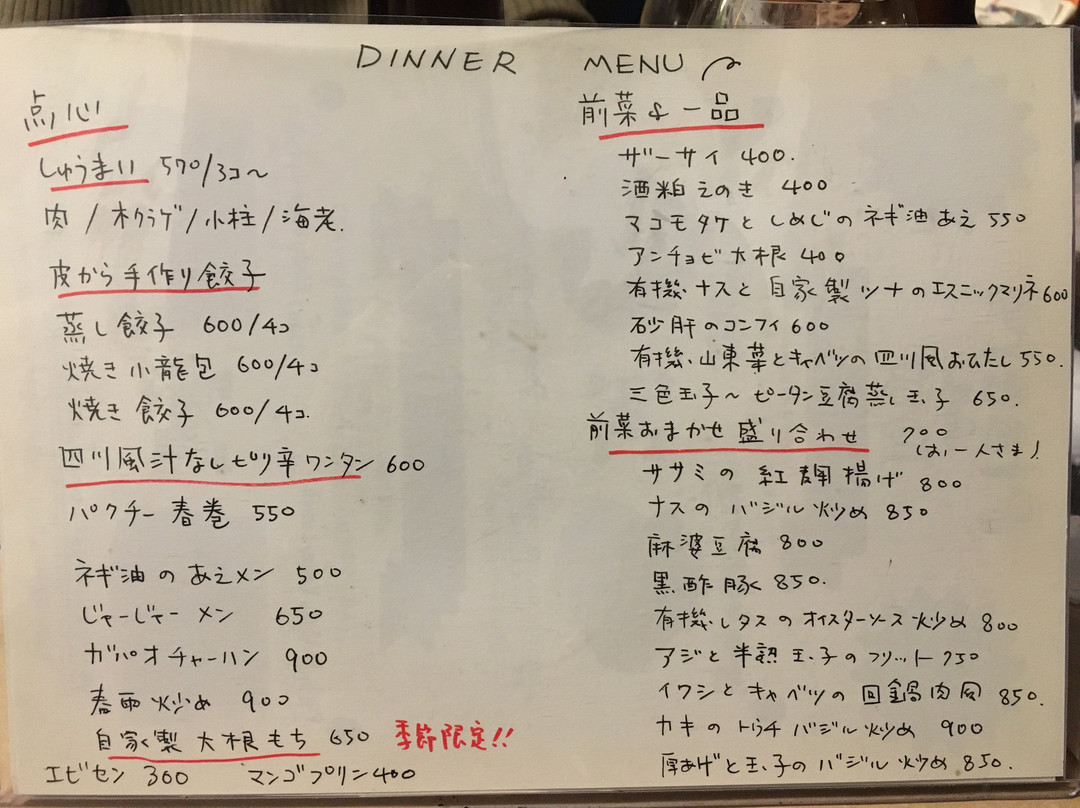 DINNER MENU
点心
しゅうまい 570/3コ〜
肉/木クラゲ/小柱/海老.
皮から手作り餃子
蒸し餃子 600/4コ
焼き小龍包 600/4コ
焼き餃子 600/4コ.
四川風汁なしピリ辛ワンタン 600
パクチー春巻 550
ネギ油のあえメン 500
じゃーじゃーメン 650
ガパオチャーハン 900
春雨炒め 900
自家製大根もち 650 季節限定!!
エビセン 300 マンゴプリン 400
前菜&一品
ザーサイ 400.
酒粕えのき 400
マコモタケとしめじのネギ油あえ 550
アンチョビ大根 400
有機ナスと自家製ツナのエスニックマリネ 600
砂肝のコンフィ 600
有機山東菜とキャベツの四川風おひたし 550.
三色玉子〜ピータン豆腐蒸し玉子 650.
前菜おまかせ盛り合わせ 700
(お一人さま)
ササミの紅麹揚げ 800
ナスのバジル炒め 850
麻婆豆腐 800
黒酢豚 850.
有機レタスのオイスターソース炒め 800
アジと半熟玉子のフリット 750
イワシとキャベツの回鍋肉風 850.
カキのトウチバジル炒め 900
厚あげと玉子のバジル炒め 850.